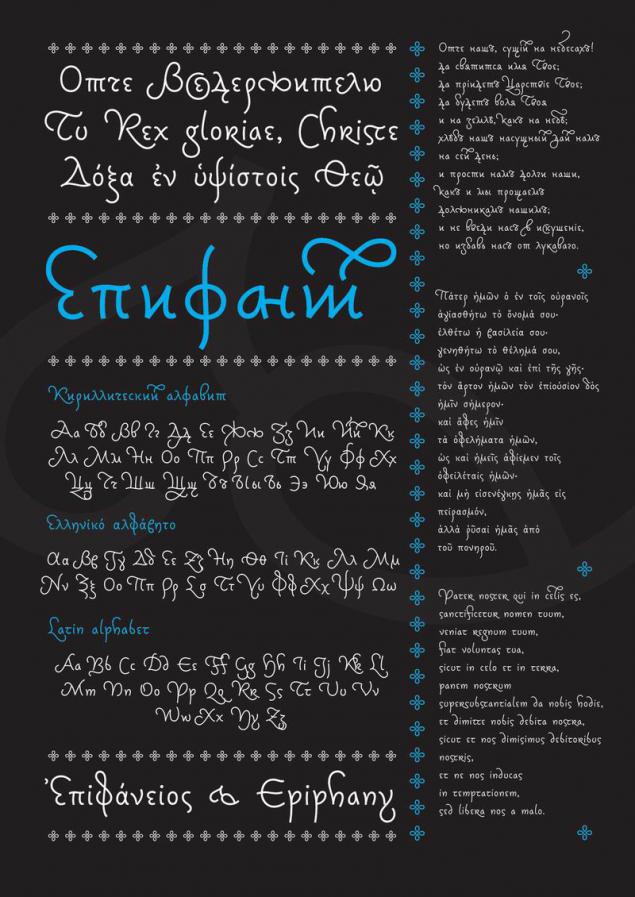 Отче Вседержителю
Tu Rex gloriae, Christe
Δόξα ἐν ὑψίστοις Θεῷ
Епифаний
Кириллический алфавит
Аа Бб Вв Гг Дд Ее Жж Зз Ии Йй Кк
Лл Мм Нн Оо Пп Рр Сс Тт Уу Фф Хх
Цц Чч Шш Щщ Ъъ Ыы Ьь Ээ Юю Яя
Ελληνικό αλφάβητο
Αα Ββ Γγ Δδ Εε Ζζ Ηη Θθ Ιι Κκ Λλ Μμ
Νν Ξξ Οο Ππ Ρρ Σσ Ττ Υυ Φφ Χχ Ψψ Ωω
Latin alphabet
Aa Bb Cc Dd Ee Ff Gg Hh Ii Jj Kk Ll
Mm Nn Oo Pp Qq Rr Ss Tt Uu Vv
Ww Xx Yy Zz
Ἐπιφάνειος & Epiphany
Отче нашъ, сущій на небесахъ!
да святится имя Твое;
да пріидетъ Царствіе Твое;
да будетъ воля Твоя
и на землѣ, какъ на небѣ;
хлѣбъ нашъ насущный дай намъ
на сей день;
и прости намъ долги наши,
какъ и мы прощаемъ
должникамъ нашимъ;
и не введи насъ в искушеніе,
но избавь насъ от лукаваго.
Πάτερ ἡμῶν ὁ ἐν τοῖς οὐρανοῖς
ἁγιασθήτω τὸ ὄνομά σου·
ἐλθέτω ἡ βασιλεία σου·
γενηθήτω τὸ θέλημά σου,
ὡς ἐν οὐρανῷ καὶ ἐπὶ τῆς γῆς·
τὸν ἄρτον ἡμῶν τὸν ἐπιούσιον δὸς
ἡμῖν σήμερον·
καὶ ἄφες ἡμῖν
τὰ ὀφελήματα ἡμῶν,
ὡς καὶ ἡμεῖς ἀφίεμεν τοῖς
ὀφειλέταις ἡμῶν·
καὶ μὴ εἰσενέγκῃς ἡμᾶς εἰς
πειρασμόν,
ἀλλὰ ῥῦσαι ἡμᾶς ἀπὸ
τοῦ πονηροῦ.
Pater noster qui in celis es,
sanctificetur nomen tuum,
veniat regnum tuum,
fiat voluntas tua,
sicut in celo et in terra,
panem nostrum
supersubstantialem da nobis hodie,
et dimitte nobis debita nostra,
sicut et nos dimisimus debitoribus
nostris,
et ne nos inducas
in temptationem,
sed libera nos a malo.